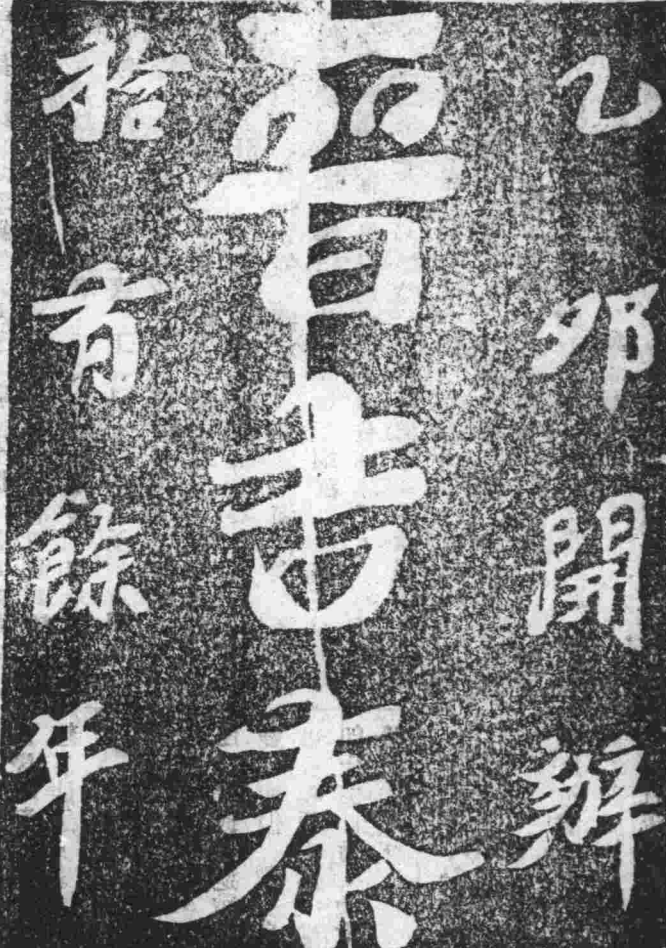 乙卯開辦
晉吉泰
拾有餘年